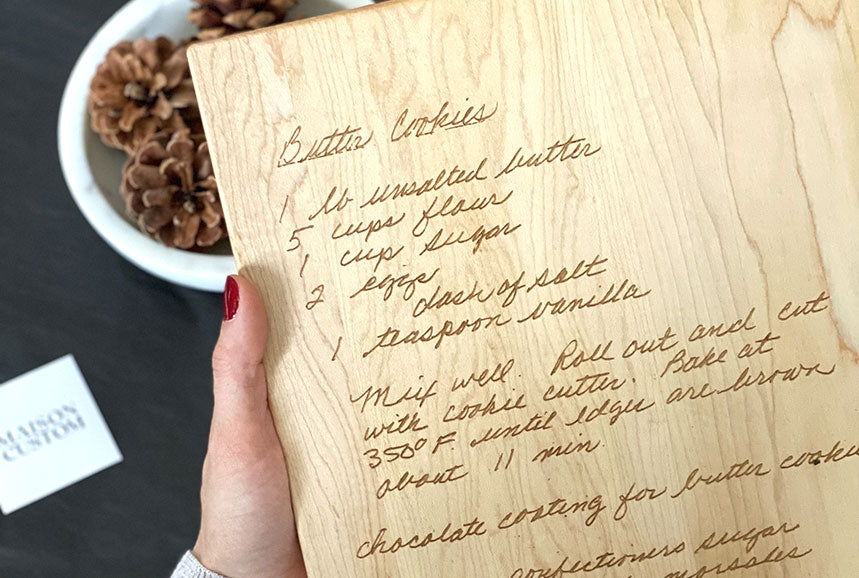 Butter Cookies
1 lb unsalted butter
5 cups flour
1 cup sugar
2 eggs
dash of salt
1 teaspoon vanilla
Mix well. Roll out and cut
with cookie cutter. Bake at
350° F. until edges are brown
about 11 min.
chocolate coating for butter cookie
confectioners sugar
morsales
MAISON
CUSTOM